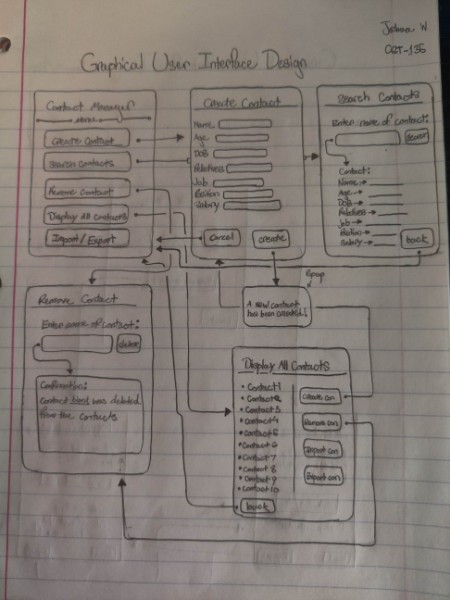 CST-135
Graphical User Interface Design
Contact Manager
Create Contact
Search Contacts
Remove Contact
Display All Contacts
Import / Export
Create Contact
Name
Age
DOB
Relatives
Job
Position
Salary
Cancel
create
Search Contacts
Enter name of contact:
search
Contact:
Name →
Age →
DOB →
Relatives →
Job →
Position →
Salary →
back
Popup
A new contact
has been created!
Remove Contact
Enter name of contact:
delete
Confirmation:
Contact
was deleted
from the contacts
Display All Contacts
• Contact 1
• Contact 2
• Contact 3
• Contact 4
• Contact 5
• Contact 6
• Contact 7
• Contact 8
• Contact 9
• Contact 10
create con
Remove con
Import con
Export con
back